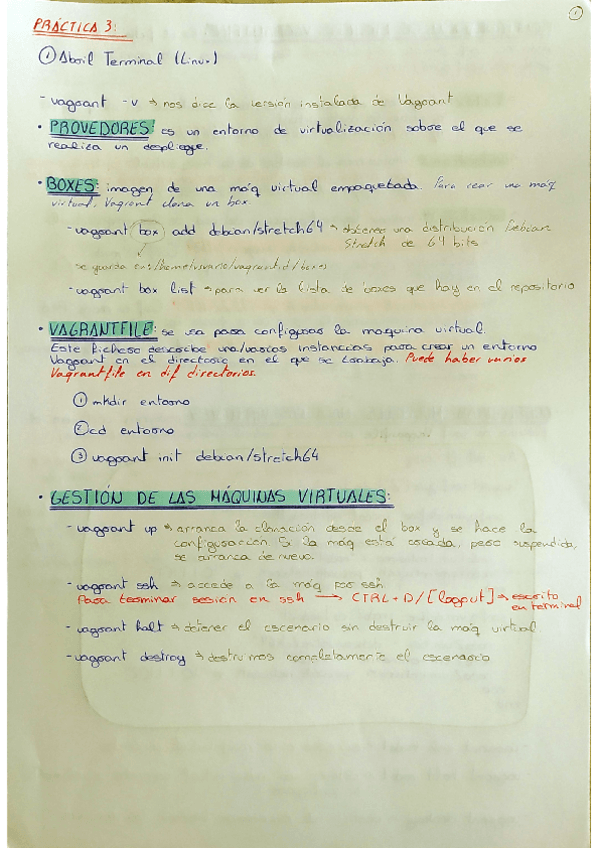 1
PRÁCTICA 3:
① Abril Terminal (Linux)
- vagrant -v → nos dice la versión instalada de Vagrant
· PROVEDORES: es un entorno de virtualización sobre el que se
realiza un despliegue.
· BOXES: imagen de una máq virtual empaquetada. Para crear una máq
virtual, Vagrant clona un box.
- vagrant box add debian/stretch64 → obtener una distribución Debian
Stretch de 64 bits
se guarda en:/home/usuario/vagrant.d/boxes
- vagrant box list → para ver la lista de boxes que hay en el repositorio
· VAGRANTFILE: se usa para configurar la maquina virtual.
Este fichero describe una/varias instancias para crear un entorno
Vagrant en el directorio en el que se trabaja. Puede haber varios
Vagrantfile en dif directorios.
① mkdir entorno
② cd entorno
③ vagrant init debian/stretch64
· GESTIÓN DE LAS MÁQUINAS VIRTUALES:
- vagrant up → arranca la clonación desde el box y se hace la
configuración. Si la máq está creada, pero suspendida,
se arranca de nuevo.
- vagrant ssh → accede a la máq por ssh
Para terminar sesión en ssh → CTRL+D/[logout] → escrito
en terminal
- vagrant halt → detener el escenario sin destruir la máq virtual
- vagrant destroy → destruimos completamente el escenario